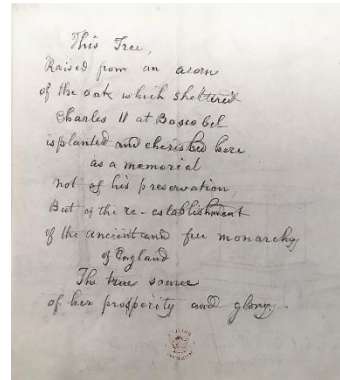 This Tree,
Raised from an acorn
of the oak which sheltered
Charles II at Boscobel
is planted and cherished here
as a memorial
not of his preservation
But of the re-establishment
of the ancient and free monarchy
of England
The true source
of her prosperity and glory.